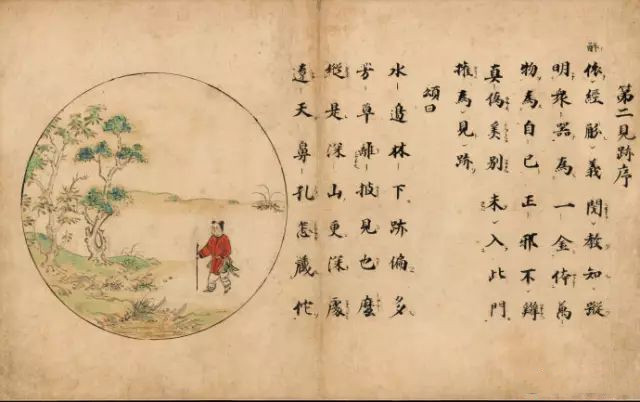 第二見跡序
依經解義閲教知蹤
明衆器為一金体萬
物為自己正邪不辨
真偽奚別未入此門
権為見跡
頌曰
水邊林下跡偏多
芳草離披見也麼
縱是深山更深處
遼天鼻孔怎藏佗